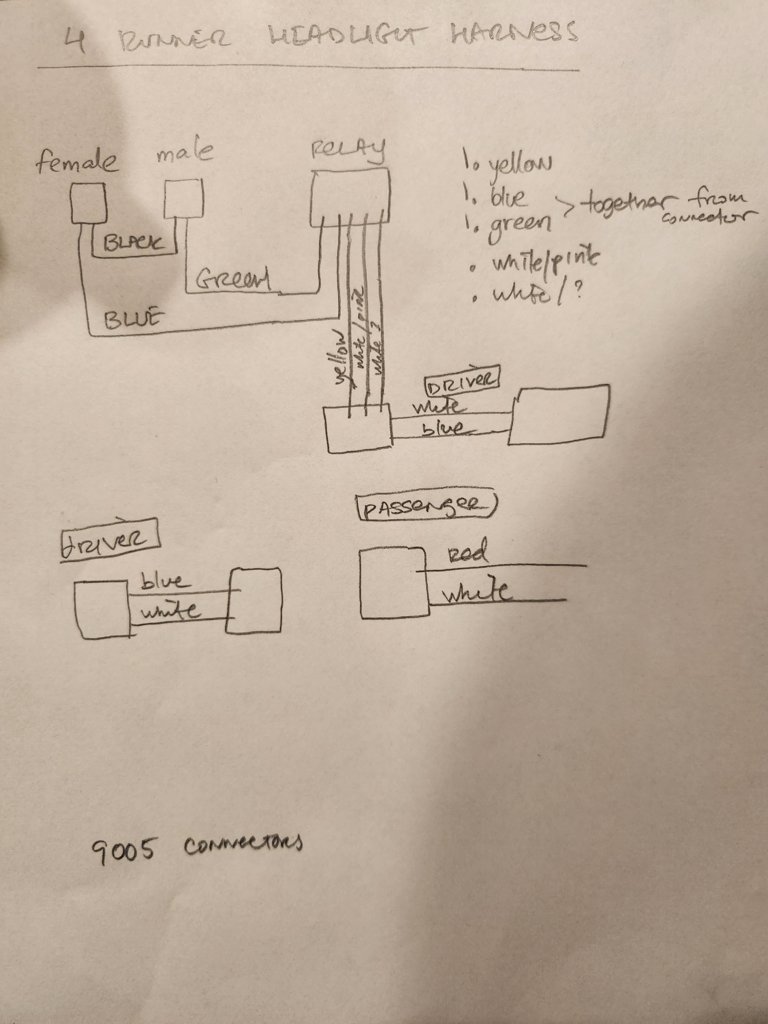 4 RUNNER HEADLIGHT HARNESS
female male RELAY
BLACK
GREEN
BLUE
1. yellow
1. blue > together from connector
1. green
. white/pink
. white/?
yellow
white/pink
white ?
DRIVER
white
blue
DRIVER
blue
white
PASSENGER
red
white
9005 CONNECTORS